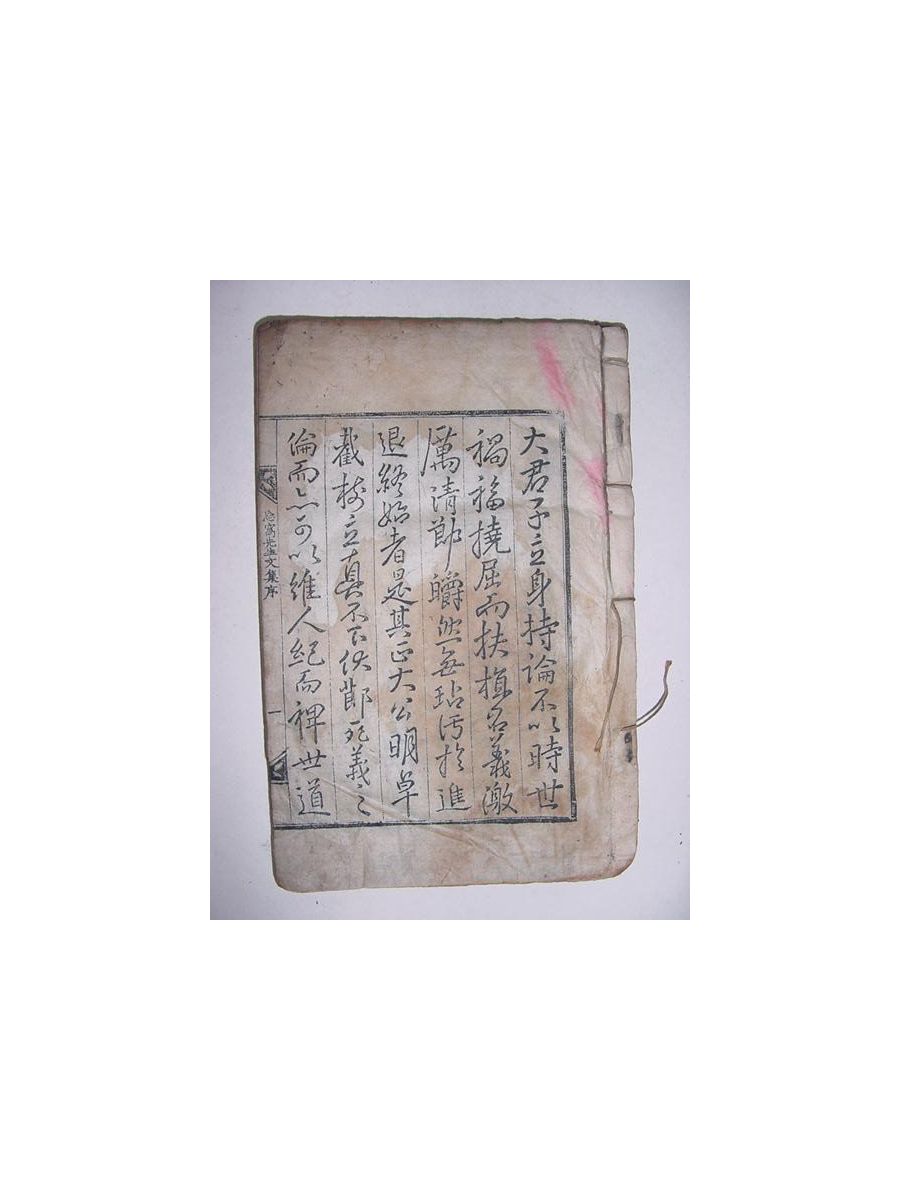 大君子立身持論不以時世
禍福撓屈而扶植名義激
厲清節皭然無玷汚於進
退終始者是其正大公明卓
截樹立眞不下伏節死義之
倫而亦可以維人紀而裨世道
窩先生文集序
一